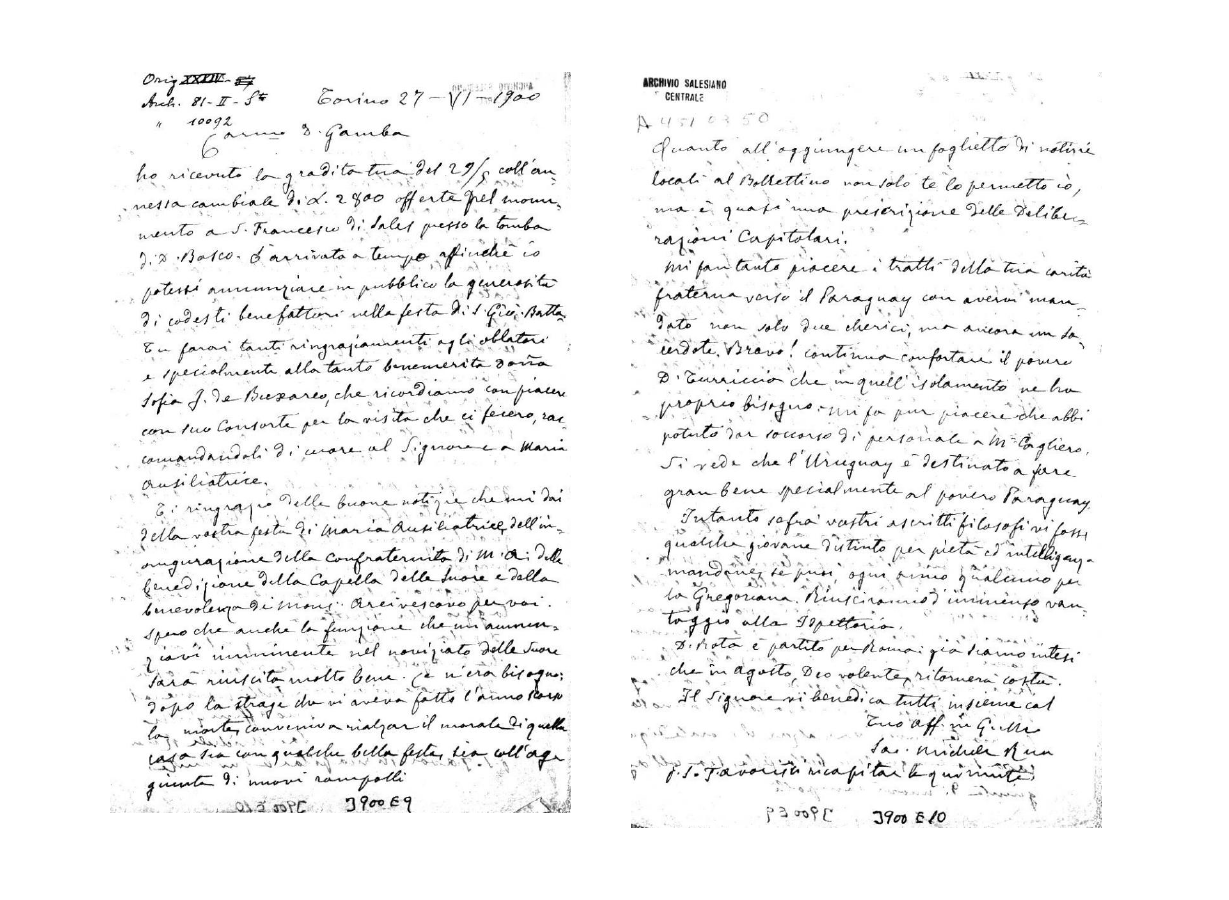 Orig XXXIV - 57
Arch. 81-II-Sta
" 10092
Torino 27-VI-1900
Carmo D. Gamba
ho ricevuto la gradita tua del 29/5 coll'an-
nessa cambiale di L. 2800 offerte pel monu-
mento a S. Francesco di Sales presso la tomba
di D. Bosco. È arrivato a tempo affinchè io
potessi annunziare in pubblico la generosità
di codesti benefattori nella festa di S. Gio. Batta
Tu farai tanti ringraziamenti agli oblatori
e specialmente alla tanto benemerita Doña
Sofia J. de Buxareo, che ricordiamo con piacere
con suo Consorte per la visita che ci fecero, rac
comandandoli di cuore al Signore e a Maria
Ausiliatrice.
Ti ringrazio delle buone notizie che mi dai
della vostra festa di Maria Ausiliatrice, dell'in-
augurazione della Confraternita di M. A. della
benedizione della Capella delle Suore e della
benevolenza di Mons. Arcivescovo per voi.
Spero che anche la funzione che mi annun-
ziavi imminente nel noviziato delle Suore
sarà riuscita molto bene. Ce n'era bisogno;
dopo la strage che vi aveva fatto l'anno scorso
la morte, conveniva rialzar il morale di quella
casa sia con qualche bella festa, sia coll'ag
giunta di nuovi rampolli
3900 E9
ARCHIVIO SALESIANO
CENTRALE
A 4510350
Quanto all'aggiungere un foglietto di notizie
locali al Bollettino non solo te lo permetto io,
ma è quasi una prescrizione delle Delibe-
razioni Capitolari.
Mi fan tanto piacere i tratti della tua carità
fraterna verso il Paraguay con avervi man-
dato non solo due cherici, ma ancora un sa-
cerdote. Bravo! continua confortare il povero
D. Turriccia che in quell'isolamento ne ha
proprio bisogno. Mi fa pur piacere che abbi
potuto dar soccorso di personale a Mr Cagliero.
Si vede che l'Uruguay è destinato a fare
gran bene specialmente al povero Paraguay.
Intanto se fra' vostri ascritti filosofi vi fosse
qualche giovane distinto per pietà ed intelligenza
mandane, se puoi, ogni anno qualcuno per
la Gregoriana. Riusciranno d'immenso van-
taggio alla Ispettoria.
D. Rota è partito per Roma: già siamo intesi
che in agosto, Deo volente, ritornerà costà.
Il Signore vi benedica tutti insieme col
Tuo aff. in G. e M.
Sac. Michele Rua
P.S. Favorisci ricapitar le qui unite
3900 E 10